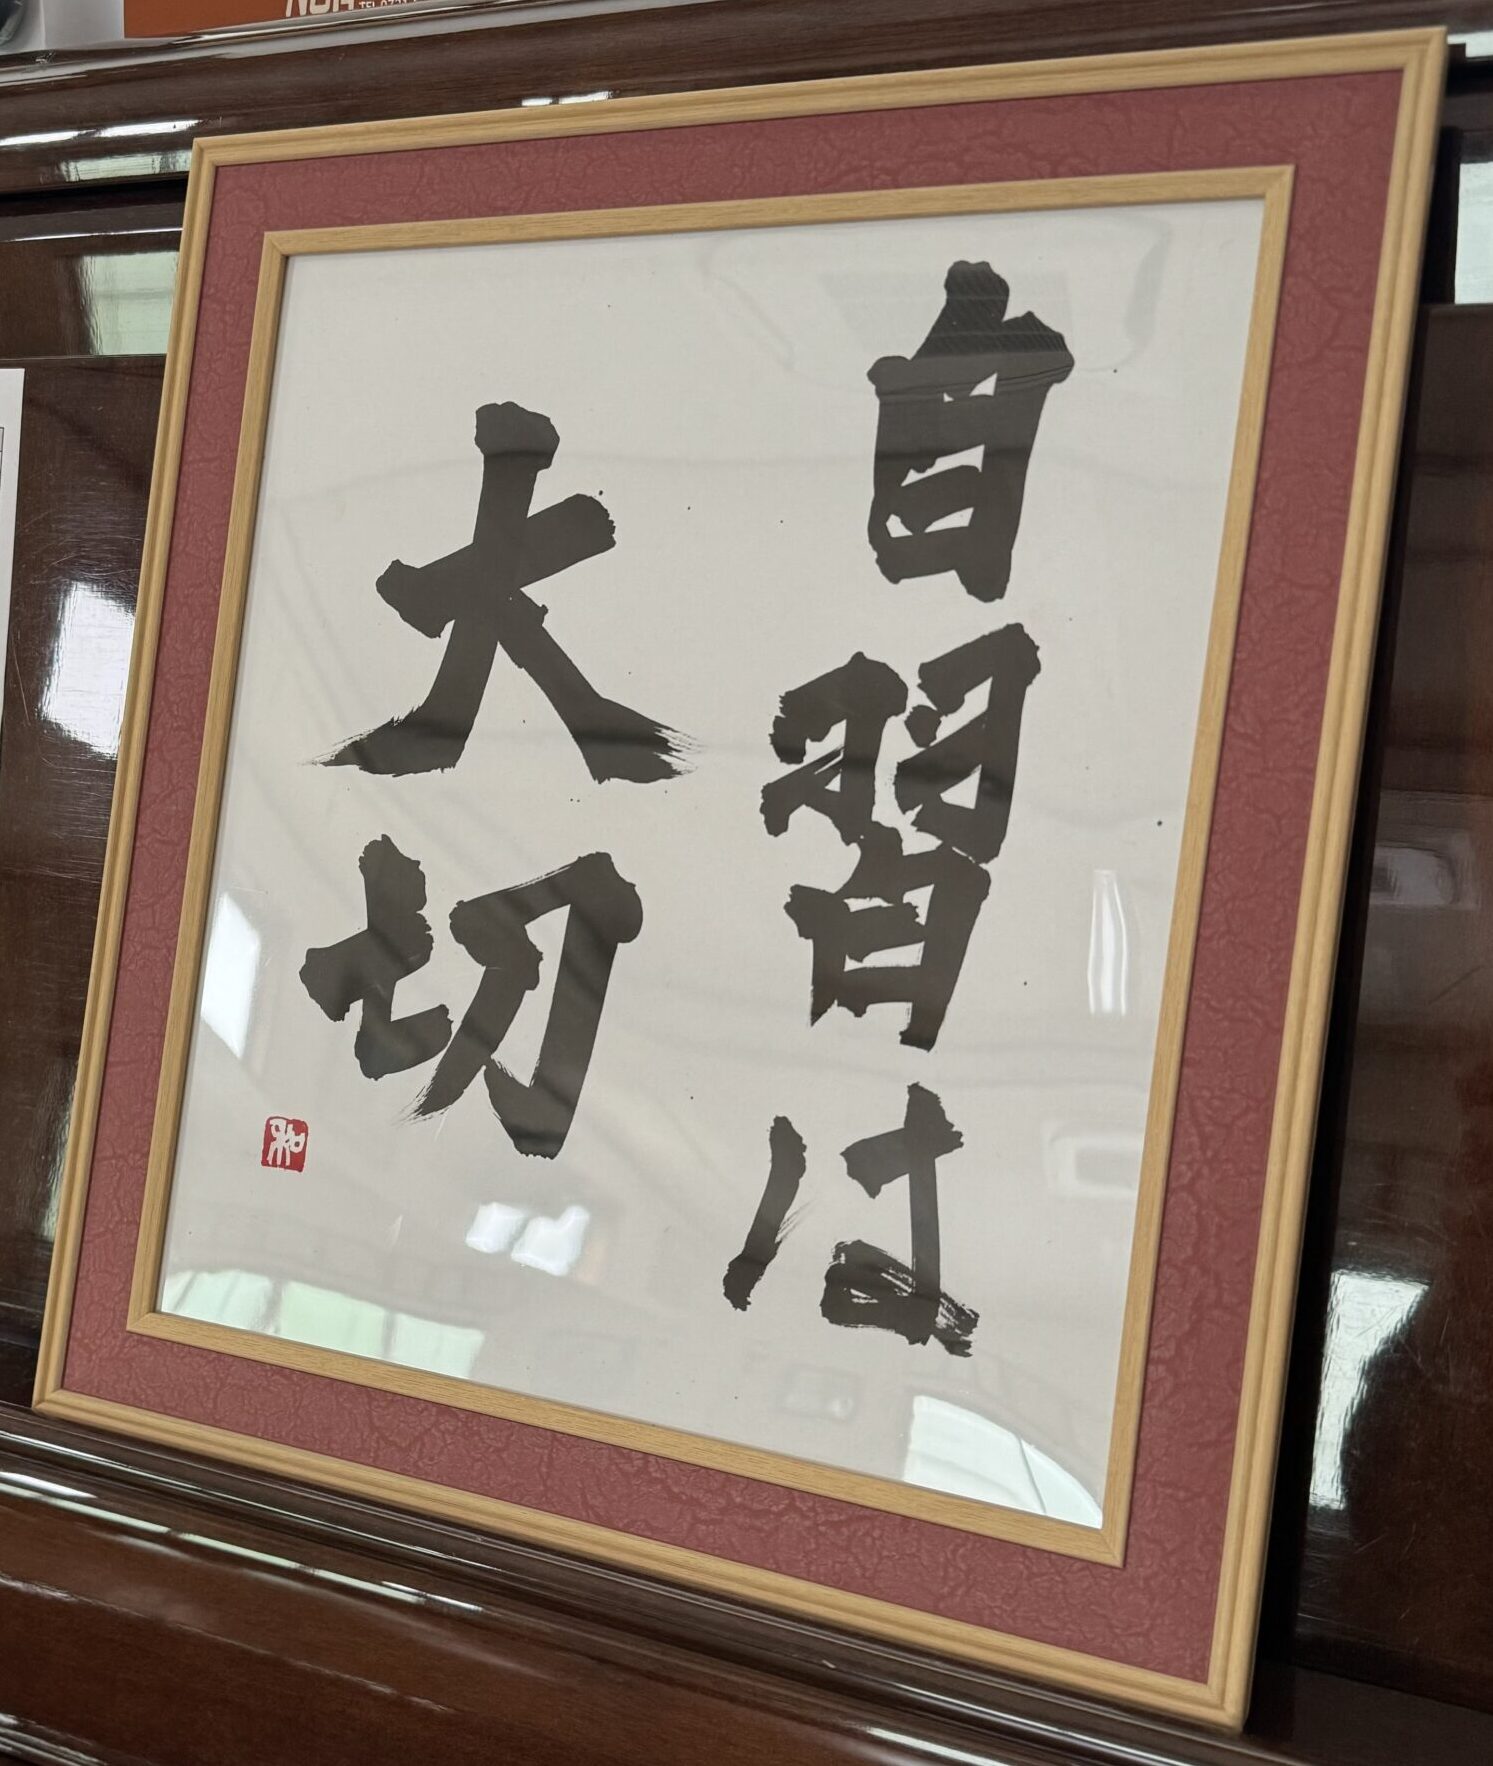 自習は
大切